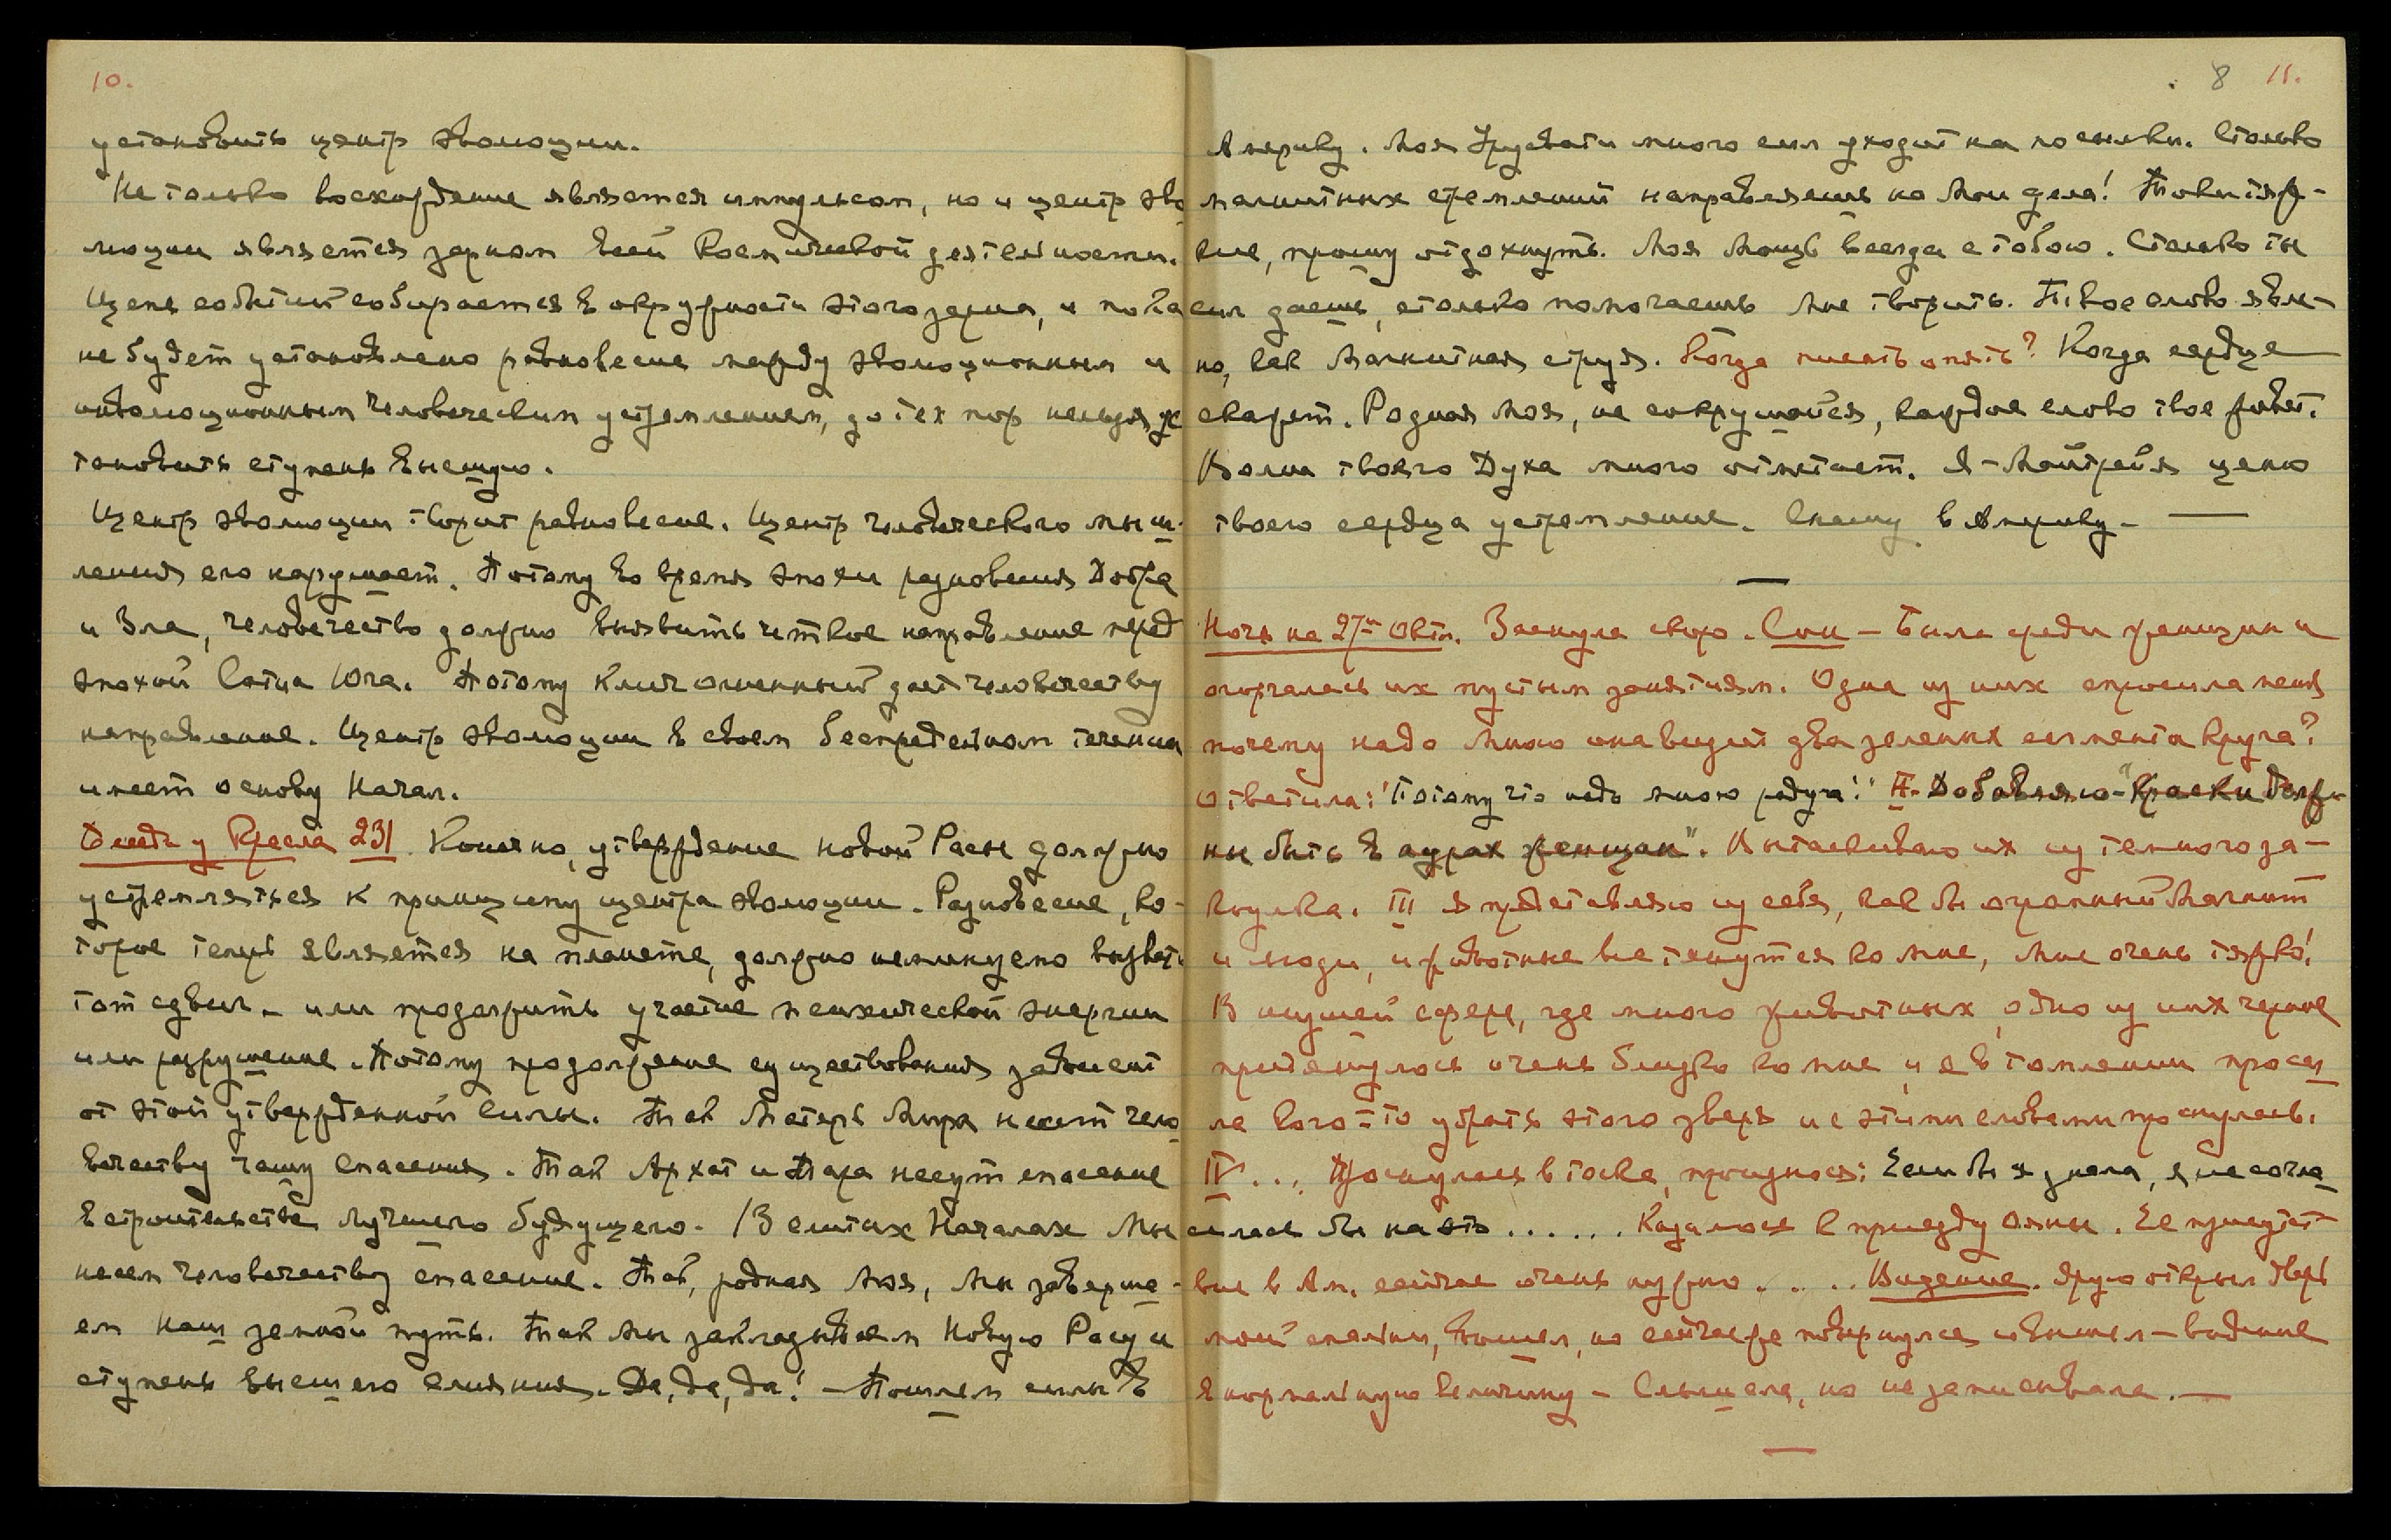 10.
установить центр эволюции.
Не только восхождение является импульсом, но и центр эво
люции является зерном всей Космической деятельности.
Цепь событий собирается в окружности этого зерна, и пока
не будет установлено равновесие между эволюционным и
инволюционным человеческим устремлением, до тех пор нельзя ус
тановить ступень высшую.
Центр эволюции творит равновесие. Центр человеческого мыш-
ления его нарушает. Потому во время эпохи равновесия Добра
и Зла, человечество должно выявить четкое направление перед
эпохой Сатиа Юга. Потому Клич огненный дает человечеству
направление. Центр эволюции в своем беспредельном течении
имеет основу Начал.
Беседа у Кресла 231. Конечно, утверждение новой Расы должно
устремляться к принципу центра эволюции. Равновесие, ко-
торое теперь является на планете, должно неминуемо вызвать
тот сдвиг – или продолжить участие психической энергии
или разрушение. Потому продолжение существования зависит
от этой утвержденной силы. Так Матерь Мира несет чело
вечеству чашу спасения. Так Архат и Тара несут спасение
в строительстве лучшего будущего. В слитых Началах Мы
несем человечеству спасение. Так, родная моя, мы заверша-
ем Наш земной путь. Так мы закладываем Новую Расу и
ступень высшего слияния. Да, да, да! – Пошлем силы в
8 11.
Америку. Моя Урусвати много сил уходит на посылки. Столько
магнитных стремлений направляешь на Мои дела! Токи тяж-
кие, прошу отдохнуть. Моя Мощь всегда с тобою. Столько ты
сил даешь, столько помогаешь Мне творить. Твое слово явле-
но, как Магнитная струя. Когда писать опять? Когда сердце
скажет. Родная Моя, не сокрушайся, каждое слово твое живет.
Волна твоего Духа много отметает. Я – Майтрейя ценю
твоего сердца устремление. Спешу в Америку –
Ночь на 27ое Окт. Заснула скоро. Сон – Была среди женщин и
огорчалась их пустым занятиям. Одна из них спросила меня
почему надо Мною она видит два зеленых сегмента круга?
Ответила: "Потому что надо мною радуга." II. Добавляю – "Краски долж-
ны быть в аурах женщин". Вытаскиваю их из темного за-
коулка. III Я представляю из себя, как бы огромный Магнит
и люди, и животные все тянутся ко Мне, Мне очень тяжко!
В низшей сфере, где много животных, одно из них черное
придвинулось очень близко ко мне и я в томлении проси
ла кого-то убрать этого зверя и с этими словами проснулась.
IV... Проснулась в тоске, произнося: Если бы я знала, я не согла
силась бы на это...... Казалось к приезду Ояны. Ее присутст-
вие в Ам. сейчас очень нужно..... Видение. Яруя открыл дверь
моей спальни, вошел, но сейчас же повернулся и вышел – видение
в нормальную величину – Слышала, но не записывала. –